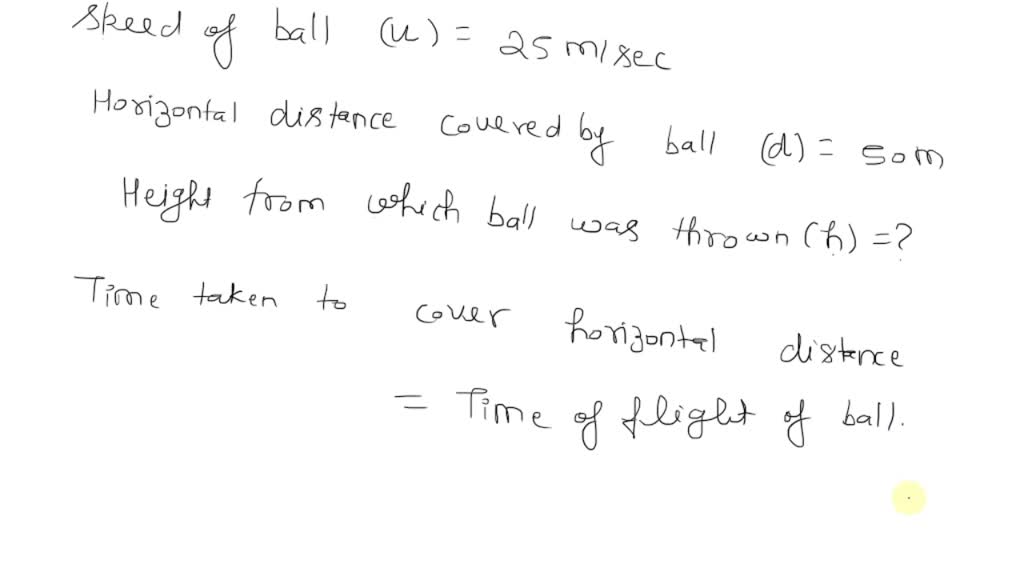 Speed of ball (u) = 25 m/sec
Horizontal distance covered by ball (d) = 50m
Height from which ball was thrown (h) = ?
Time taken to cover horizontal distance
= Time of flight of ball.